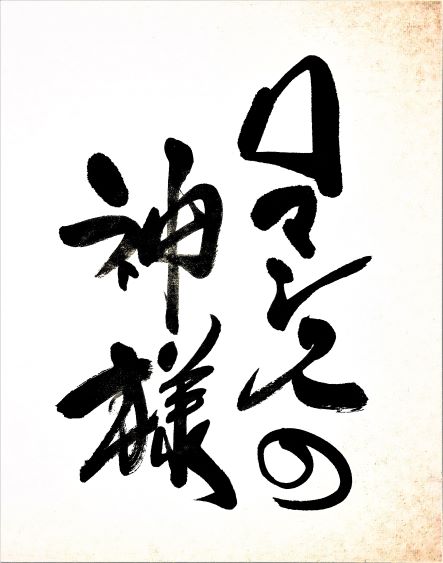 ロマンスの
神様